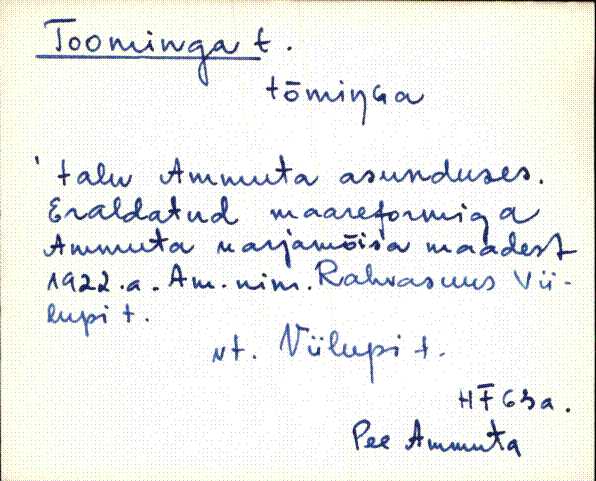 Toominga t.
tōminga
talu Ammuta asunduses.
Eraldatud maareformiga
Ammuta karjamõisa maadest
1922.a. Am. nim. Rahvasuus Vii-
lupi t.
vt. Viilupi t.
HF 63a.
Pee Ammuta